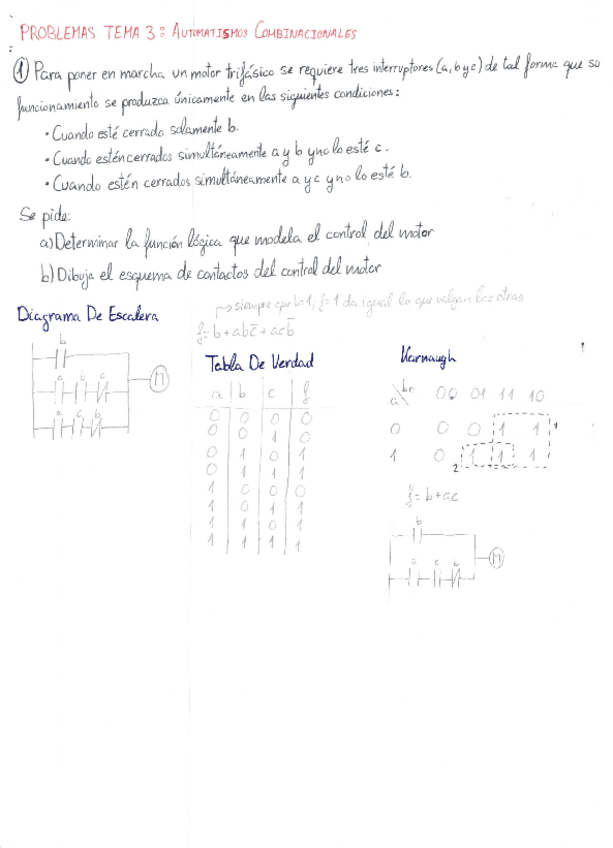 PROBLEMAS TEMA 3: AUTOMATISMOS COMBINACIONALES
① Para poner en marcha un motor trifásico se requiere tres interruptores (a, b y c) de tal forma que su
funcionamiento se produzca únicamente en las siguientes condiciones:
• Cuando esté cerrado solamente b.
• Cuando estén cerrados simultáneamente a y b y no lo esté c.
• Cuando estén cerrados simultáneamente a y c y no lo esté b.
Se pide:
a) Determinar la función lógica que modela el control del motor
b) Dibuja el esquema de contactos del control del motor
→ siempre que b=1, f=1 da igual lo que valgan las otras
Diagrama De Escalera
f= b + abc̄ + acb̄
Tabla De Verdad
Karnaugh
b
a b c
M
a c b
a b c f
0 0 0 0
0 0 1 0
0 1 0 1
0 1 1 1
1 0 0 0
1 0 1 1
1 1 0 1
1 1 1 1
a bc 00 01 11 10
0 0 0 1 1 1
1 0 1 1 1
2
f= b+ac
b
M
a c b